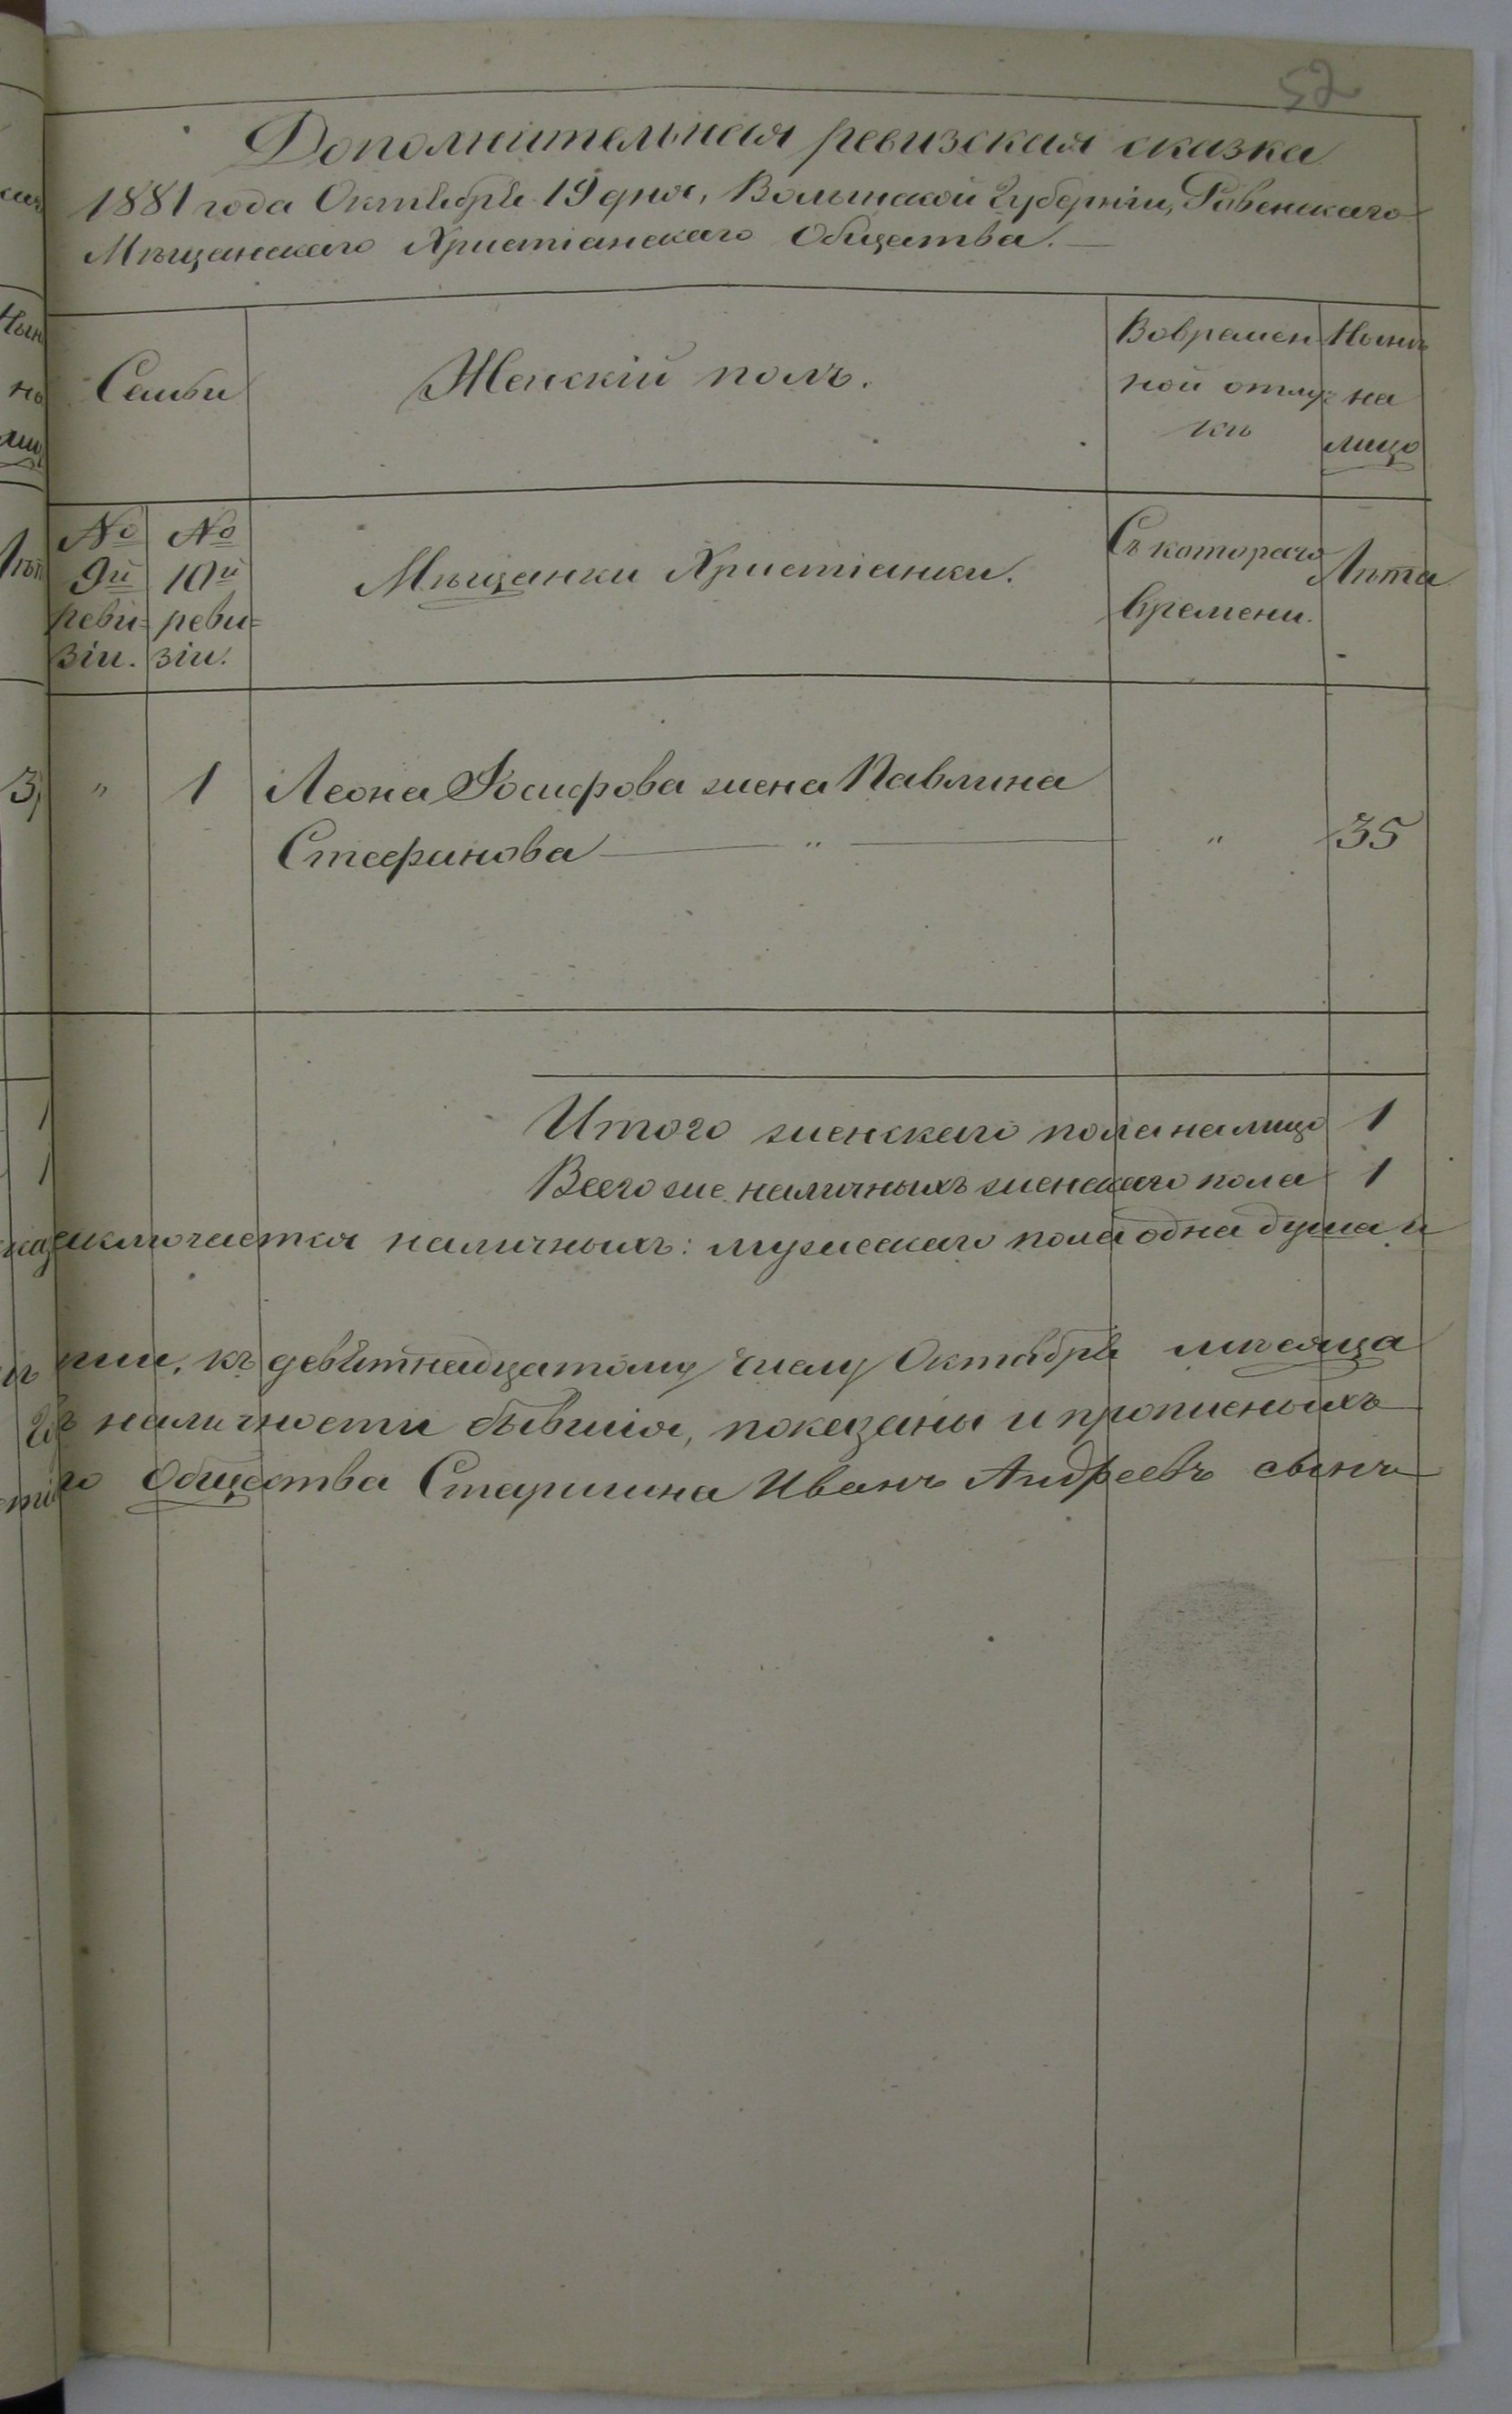 52
Дополнительная ревизская сказка
1881 года Октября 19 дня, Волынской Губерніи, Ровенскаго
Мѣщанскаго Христіанскаго Общества.
Семьи
Женскій полъ.
Вовремен
ной отлуч
кѣ
Нынѣ
на
лицо
№ 9й реви=
зіи.
№ 10й реви=
зіи.
Мѣщанки Христіанки.
Съ котораго
времени.
Лѣта
" 1 Леона Іосифова жена Павлина
Стефанова " " 35
Итого женскаго пола налицо 1
Всего же наличныхъ женскаго пола 1
аключается наличныхъ: мужескаго пола одна душа и
ніи, къ девятнадцатому числу Октября мѣсяца
ъ наличности бывшія, показаны и прописныхъ
го Общества Старшина Иванъ Андреевъ сынъ